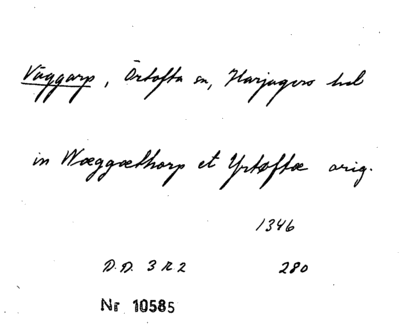 Väggarp, Örtofta sn, Harjagers hd
in Wæggæthorp et Yrtoftæ orig.
1346
D.D. 3 R 2 280
Nr 10585